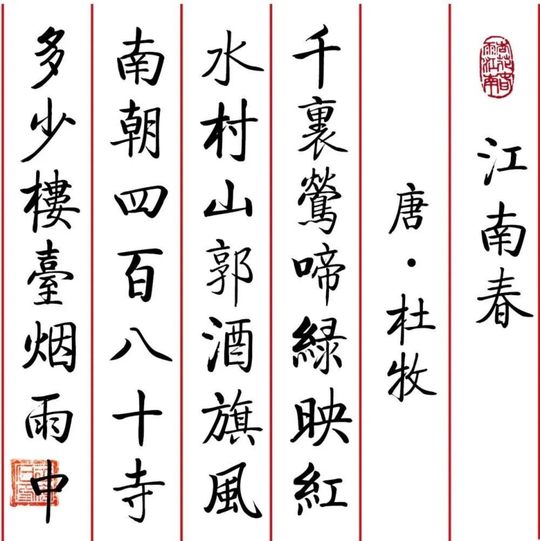 江南春
唐·杜牧
千裏鶯啼綠映紅
水村山郭酒旗風
南朝四百八十寺
多少樓臺烟雨中